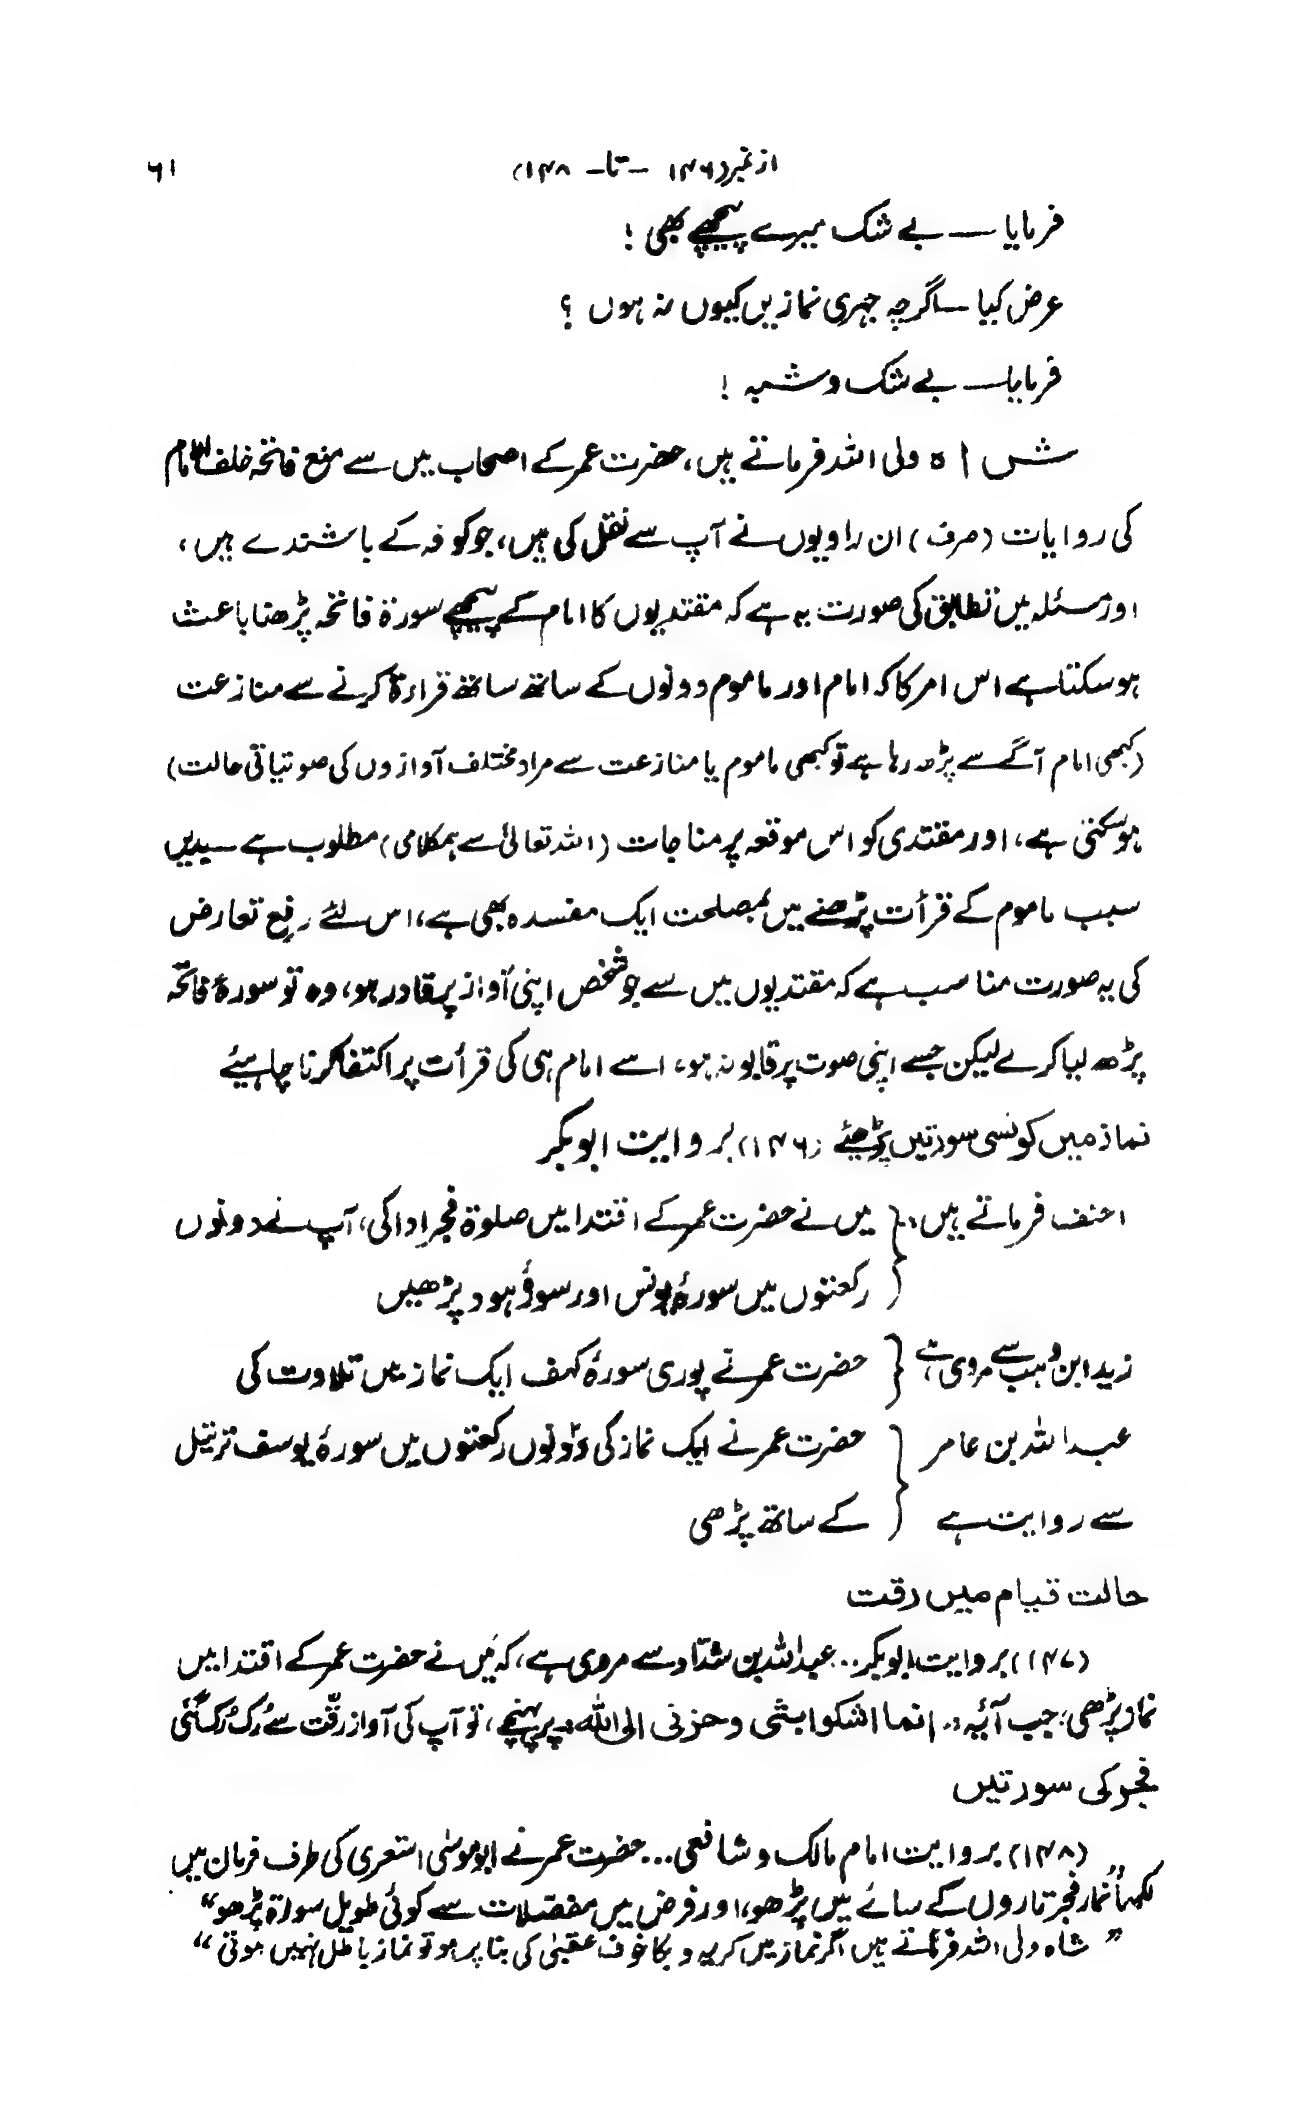 از نمبر (۱۴۶ — تا — ۱۴۸) ۶۱
فرمایا — بے شک میرے پیچھے بھی !
عرض کیا — اگرچہ جہری نمازیں کیوں نہ ہوں ؟
فرمایا — بے شک و شبہ !
شاہ ولی اللہ فرماتے ہیں، حضرت عمر کے اصحاب میں سے منع فاتحہ خلف الامام
کی روایات (صرف) ان راویوں نے آپ سے نقل کی ہیں، جو کوفہ کے باشندے ہیں،
اور مسئلہ میں تطابق کی صورت یہ ہے کہ مقتدیوں کا امام کے پیچھے سورۃ فاتحہ پڑھنا باعث
ہو سکتا ہے اس امر کا کہ امام اور ماموم دونوں کے ساتھ ساتھ قراءۃ کرنے سے منازعت
(کبھی امام آگے سے پڑھ رہا ہے تو کبھی ماموم یا منازعت سے مراد مختلف آوازوں کی صوتیاتی حالت)
ہو سکتی ہے، اور مقتدی کو اس موقعہ پر مناجات (اللہ تعالیٰ سے ہمکلامی) مطلوب ہے — بدیں
سبب ماموم کے قرأت پڑھنے میں بمصلحت ایک مفسدہ بھی ہے، اس لئے رفع تعارض
کی یہ صورت مناسب ہے کہ مقتدیوں میں سے جو شخص اپنی آواز پر قادر ہو، وہ تو سورۂ فاتحہ
پڑھ لیا کرے لیکن جسے اپنی صوت پر قابو نہ ہو، اسے امام ہی کی قرأت پر اکتفا کرنا چاہیئے
نماز میں کونسی سورتیں پڑھیئے (۱۴۶) بروایت ابوبکر
احنف فرماتے ہیں: } میں نے حضرت عمر کے اقتدا میں صلوۃ فجر ادا کی، آپ نے دونوں
رکعتوں میں سورۂ یونس اور سورۂ ہود پڑھیں
زید ابن وہب سے مروی ہے } حضرت عمر نے پوری سورۂ کہف ایک نماز میں تلاوت کی
عبداللہ بن عامر } حضرت عمر نے ایک نماز کی دونوں رکعتوں میں سورۂ یوسف ترتیل
سے روایت ہے } کے ساتھ پڑھی
حالت قیام میں رقت
(۱۴۷) بروایت ابوبکر .. عبداللہ بن شدّاد سے مروی ہے، کہ میں نے حضرت عمر کے اقتدا میں
نماز پڑھی؛ جب آئیہ :۔ انما اشکوا بثی و حزنی الی اللہ، پر پہنچے، تو آپ کی آواز رقّت سے رُک رُک گئی
فجر کی سورتیں
(۱۴۸) بروایت امام مالک و شافعی ... حضرت عمر نے ابو موسٰی اشعری کی طرف فرمان میں
لکھا "نماز فجر تاروں کے سائے میں پڑھو، اور فرض میں مفصّلات سے کوئی طویل سورۃ پڑھو"
" شاہ ولی اللہ فرماتے ہیں اگر نماز میں گریہ و بکا خوف عقبیٰ کی بنا پر ہو تو نماز باطل نہیں ہوتی "